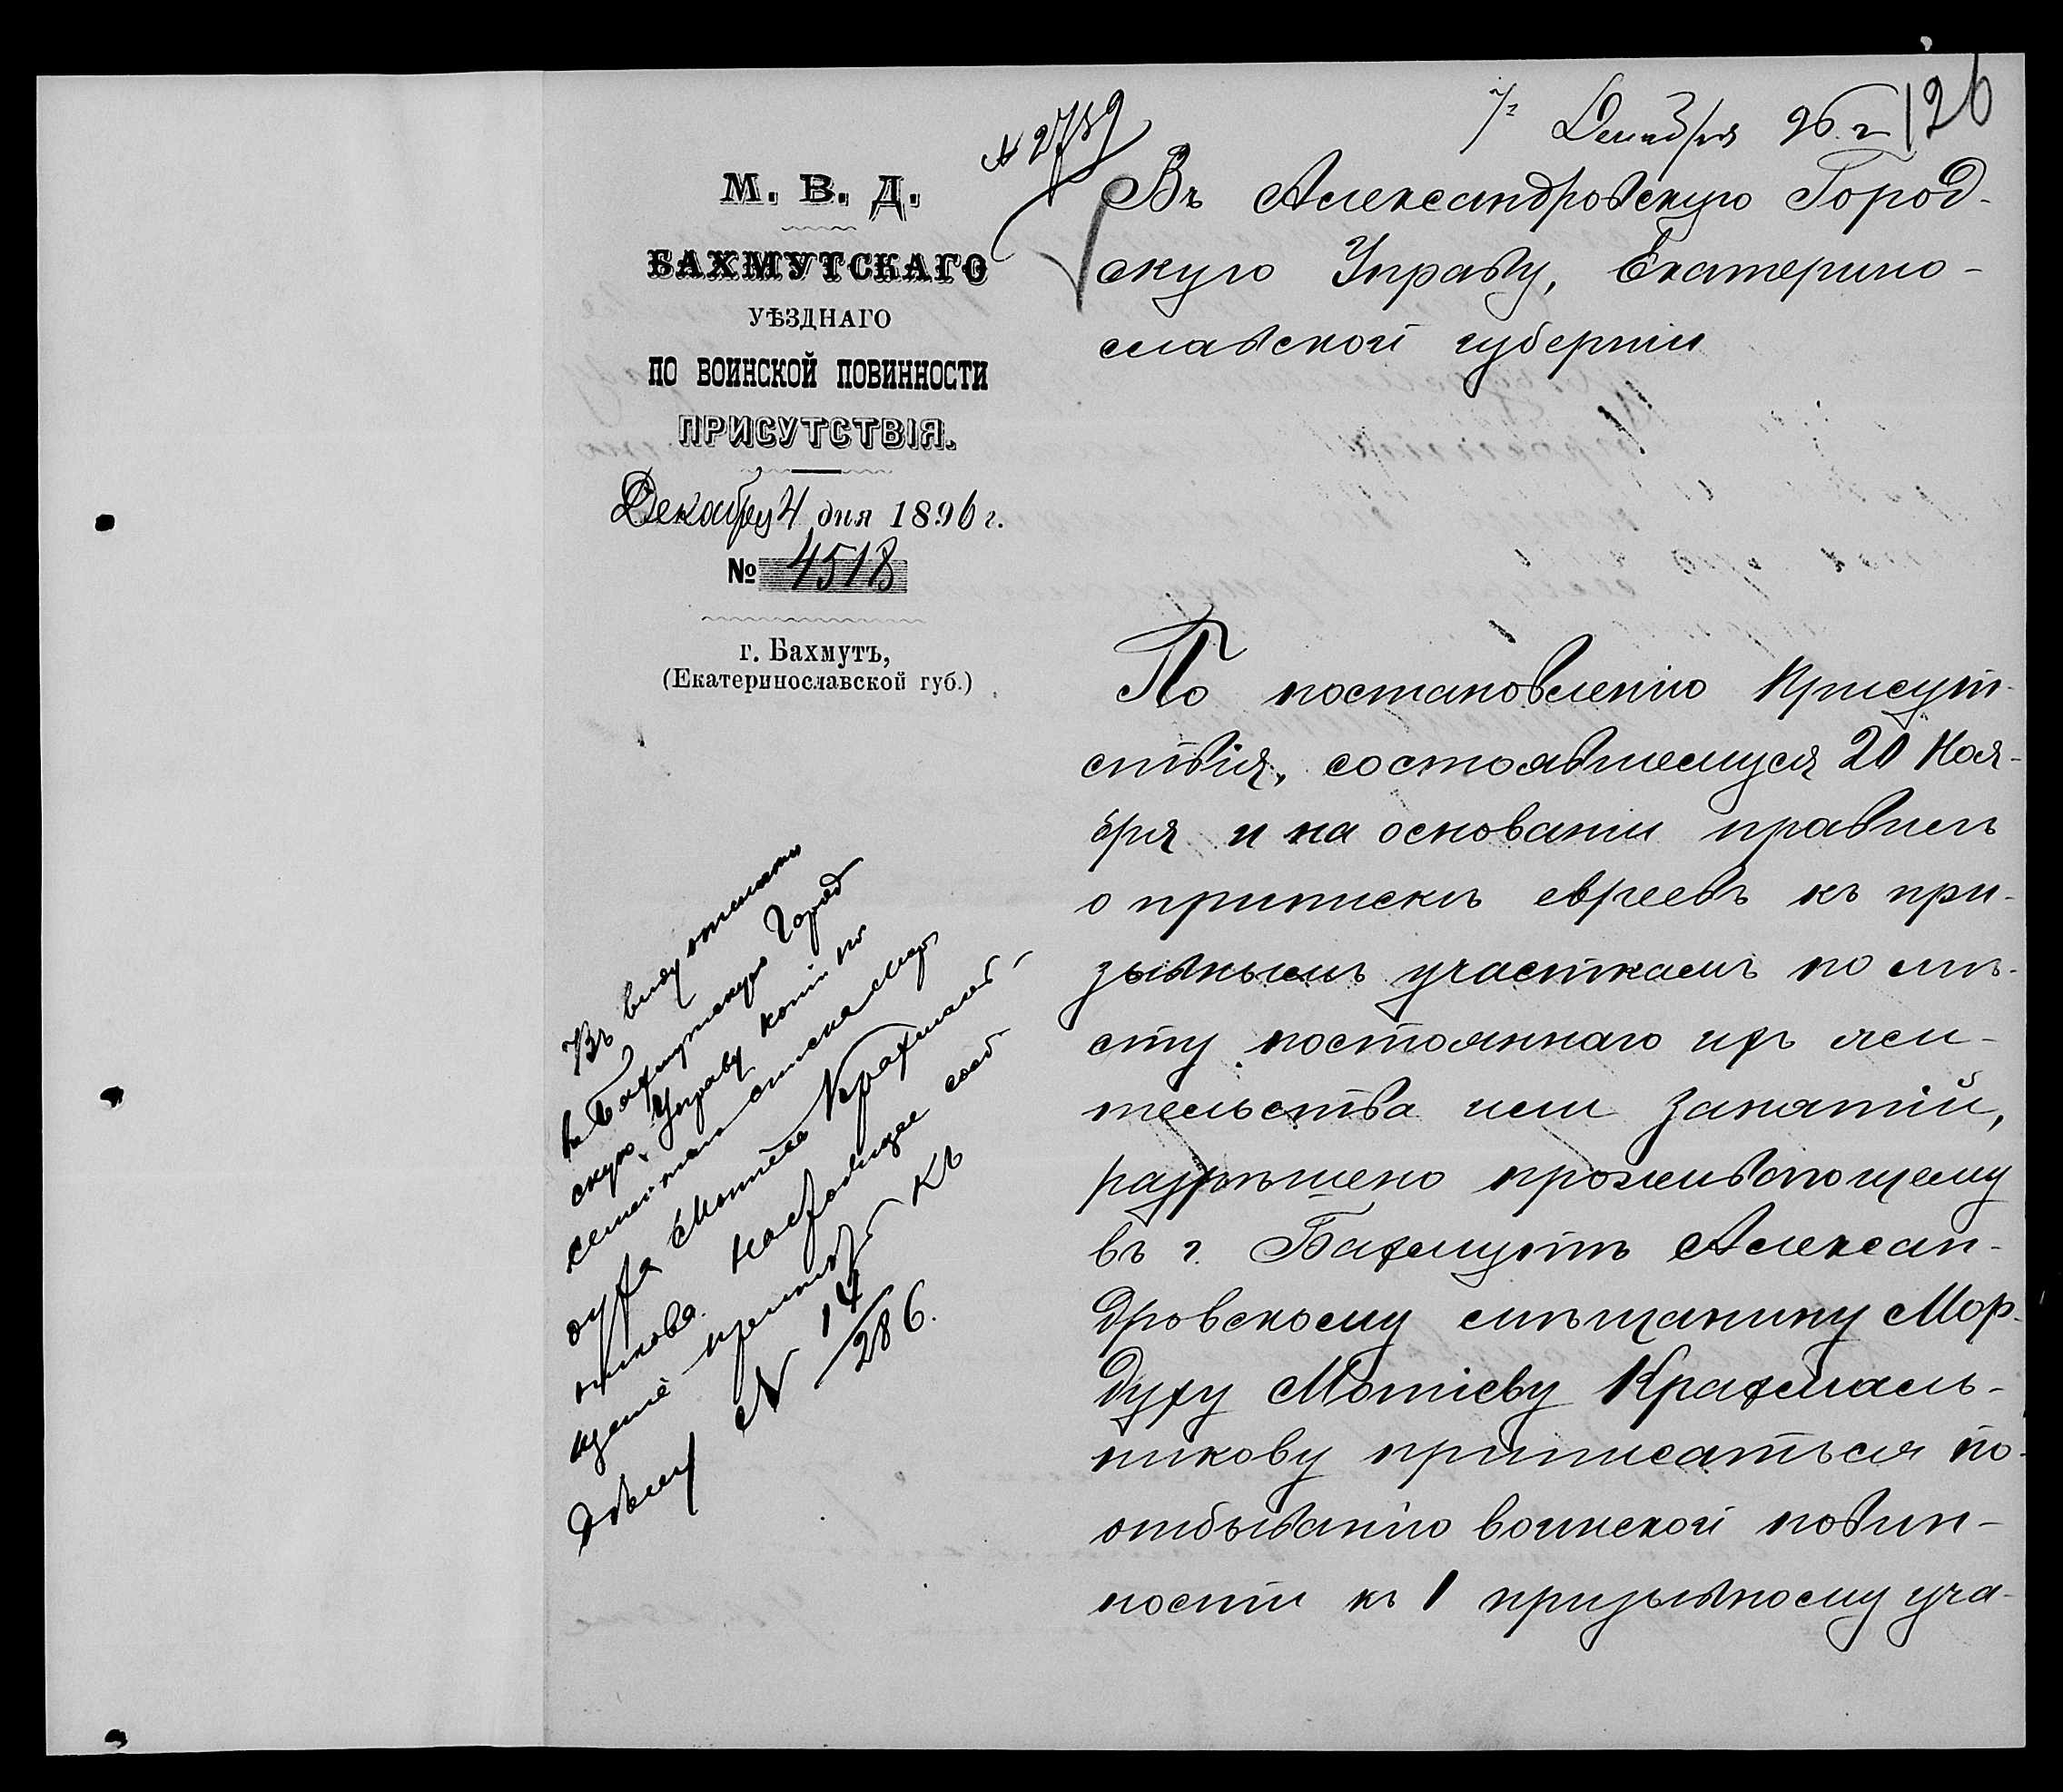 7 Декабря 96 г
126
№ 2739
М. В. Д.
БАХМУТСКАГО
УѢЗДНАГО
ПО ВОИНСКОЙ ПОВИННОСТИ
ПРИСУТСТВІЯ.
Декабря 4 дня 1896 г.
№ 4518
г. Бахмутъ,
(Екатеринославской губ.)
Въ Александровскую Город-
скую Управу, Екатерино-
славской губерніи
По постановленію Присут-
ствія, состоявшемуся 20 Ноя-
бря и на основаніи правилъ
о припискѣ евреевъ къ при-
зывнымъ участкамъ по мѣ-
сту постояннаго ихъ жи-
тельства или занятій,
разрѣшено проживающему
въ г. Бахмутѣ Алексан-
дровскому мѣщанину Мор-
духу Мотіеву Крахмаль-
никову приписаться по
отбыванію воинской повин-
ности къ 1 призывному уча-
Въ виду отсылки
въ Бахмутскую Город
скую Управу копіи по
семейнаго списка Мор
духа Мотіева Крахмаль-
никова настоящее сооб-
щеніе къ
дѣлу № 14/286.